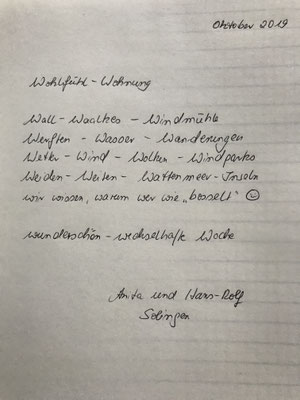 Oktober 2019
Wohlfühl-Wohnung
Wall - Waalkes - Windmühle
Werften - Wasser - Wanderungen
Wetter - Wind - Wolken - Windparks
Weiden - Weiten - Wattenmeer - Inseln
wir wissen, warum wer wie „bosselt" ☺
wunderschön - wechselhafte Woche
Anita und Hans-Rolf
Solingen